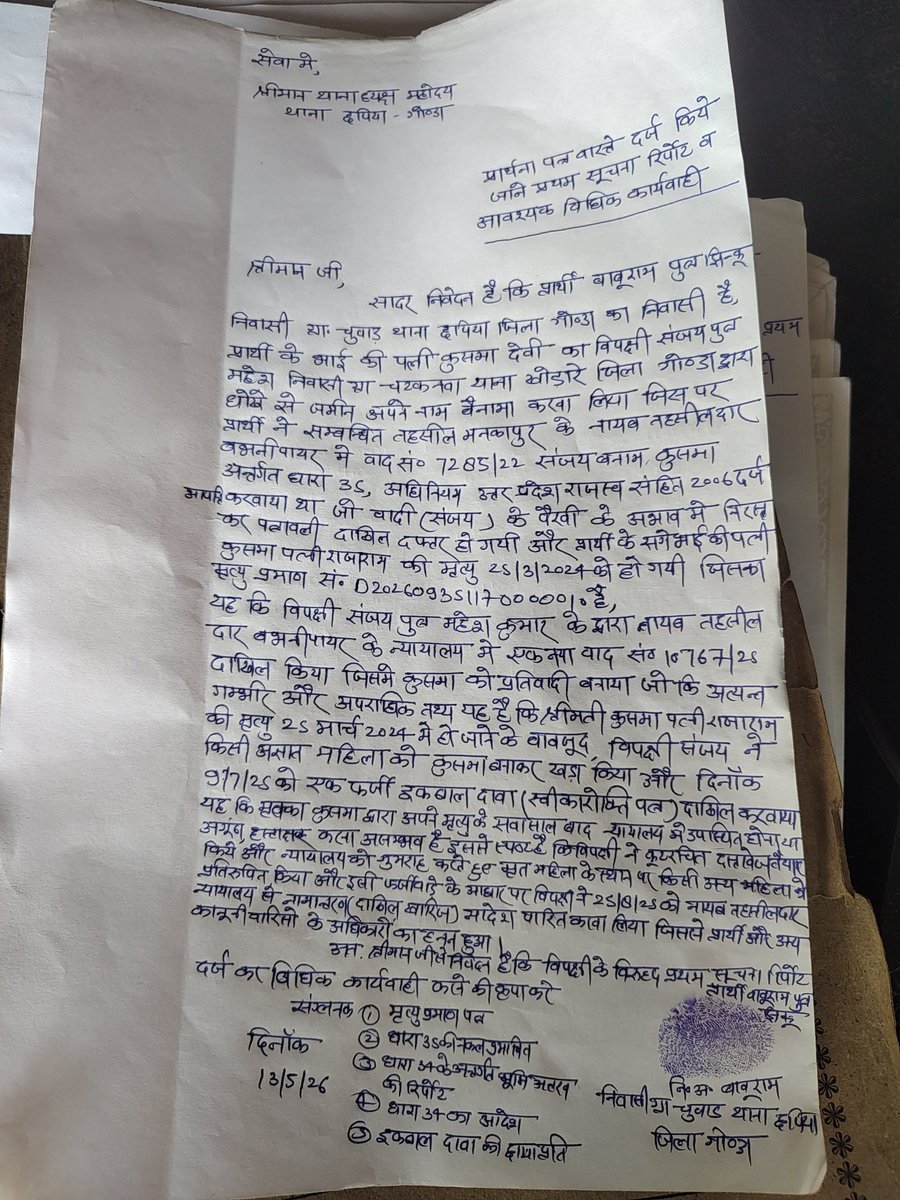 सेवा मे,
श्रीमान थानाध्यक्ष महोदय
थाना छपिया - गोण्डा
प्रार्थना पत्र वास्ते दर्ज किये
जाने प्रथम सूचना रिर्पोट व
आवश्यक विधिक कार्यवाही
श्रीमान जी,
सादर निवेदन है कि प्रार्थी बाबूराम पुत्र झिन्कू
निवासी ग्रा. चुवाड़ थाना छपिया जिला गोण्डा का निवासी है,
प्रार्थी के भाई की पत्नी कुसमा देवी का विपक्षी संजय पुत्र
महेश निवासी ग्रा चटकनवा थाना खोडारे जिला गोण्डा द्वारा
धोखे से जमीन अपने नाम बैनामा करवा लिया जिस पर
प्रार्थी ने सम्बन्धित तहसील मनकापुर के नायब तहसीलदार
बभनीपायर मे वाद सं० 7285/22 संजय बनाम कुसमा
अन्तर्गत धारा 35, अधिनियम उत्तर प्रदेश राजस्व संहित 2006 दर्ज
आपत्ति करवाया था जो वादी (संजय) के पैरवी के अभाव मे निरस्त
कर पत्रावली दाखिल दफ्तर हो गयी और प्रार्थी के सगे भाई की पत्नी
कुसमा पत्नी राजाराम की मृत्यु 25/3/2024 को हो गयी जिसका
मृत्यु प्रमाण सं. है,
यह कि विपक्षी संजय पुत्र महेश कुमार के द्वारा नायब तहसील
दार बभनीपायर के न्यायालय मे एक नया वाद सं० 10767/25
दाखिल किया जिसमे कुसमा को प्रतिवादी बनाया जो कि अत्यन्त
गम्भीर और अपराधिक तथ्य यह है कि श्रीमती कुसमा पत्नी राजाराम
की मृत्यु 25 मार्च 2024 मे हो जाने के वावजूद, विपक्षी संजय ने
किसी अज्ञात महिला को कुसमा बनाकर खड़ा किया और दिनॉक
9/7/25 को एक फर्जी इकबाल दावा (स्वीकारोक्ति पत्र) दाखिल करवाया
यह कि मृतका कुसमा द्वारा अपने मृत्यु के सवा साल बाद न्यायालय मे उपस्थित होना या
अगूंठा हस्ताक्षर करना असम्भव है इससे स्पष्ट है कि विपक्षी ने कूटरचित दस्तावेज तैयार
किये और न्यायालय को गुमराह करते हुए मृत महिला के स्थान पर किसी अन्य महिला को
प्रतिरुपित किया और इसी फर्जीवाड़े के आधार पर विपक्षी ने 25/8/25 को नायब तहसीलदार
न्यायालय से नामान्तरण (दाखिल खारिज) आदेश पारित करवा लिया जिससे प्रार्थी और अन्य
कानूनी वारिसो के अधिकारों का हनन हुआ।
अतः श्रीमान जी से निवेदन है कि विपक्षी के विरुद्ध प्रथम सूचना रिर्पोट
दर्ज कर विधिक कार्यवाही करने की कृपा करे
प्रार्थी बाबूराम पुत्र
झिन्कू
संग्लनक ① मृत्यु प्रमाण पत्र
② धारा 35 की नकल प्रमाणित
③ धारा 34 के अन्तर्गत भूमि अन्तरण
की रिर्पोट
④ धारा 34 का आदेश
⑤ इकबाल दावा की छायाप्रति
दिनॉक
13/5/26
नि०अ० बाबूराम
निवासी ग्रा. चुवाड़ थाना छपिया
जिला गोण्डा